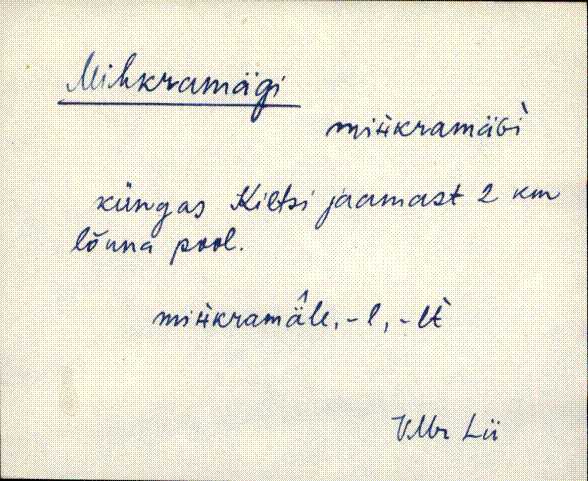 Mihkramägi
miʜ̀kramäɢì
küngas Kiltsi jaamast 2 km
lõuna pool.
miʜ̀kramä̂le, -l, -lt̀
VMr Lii